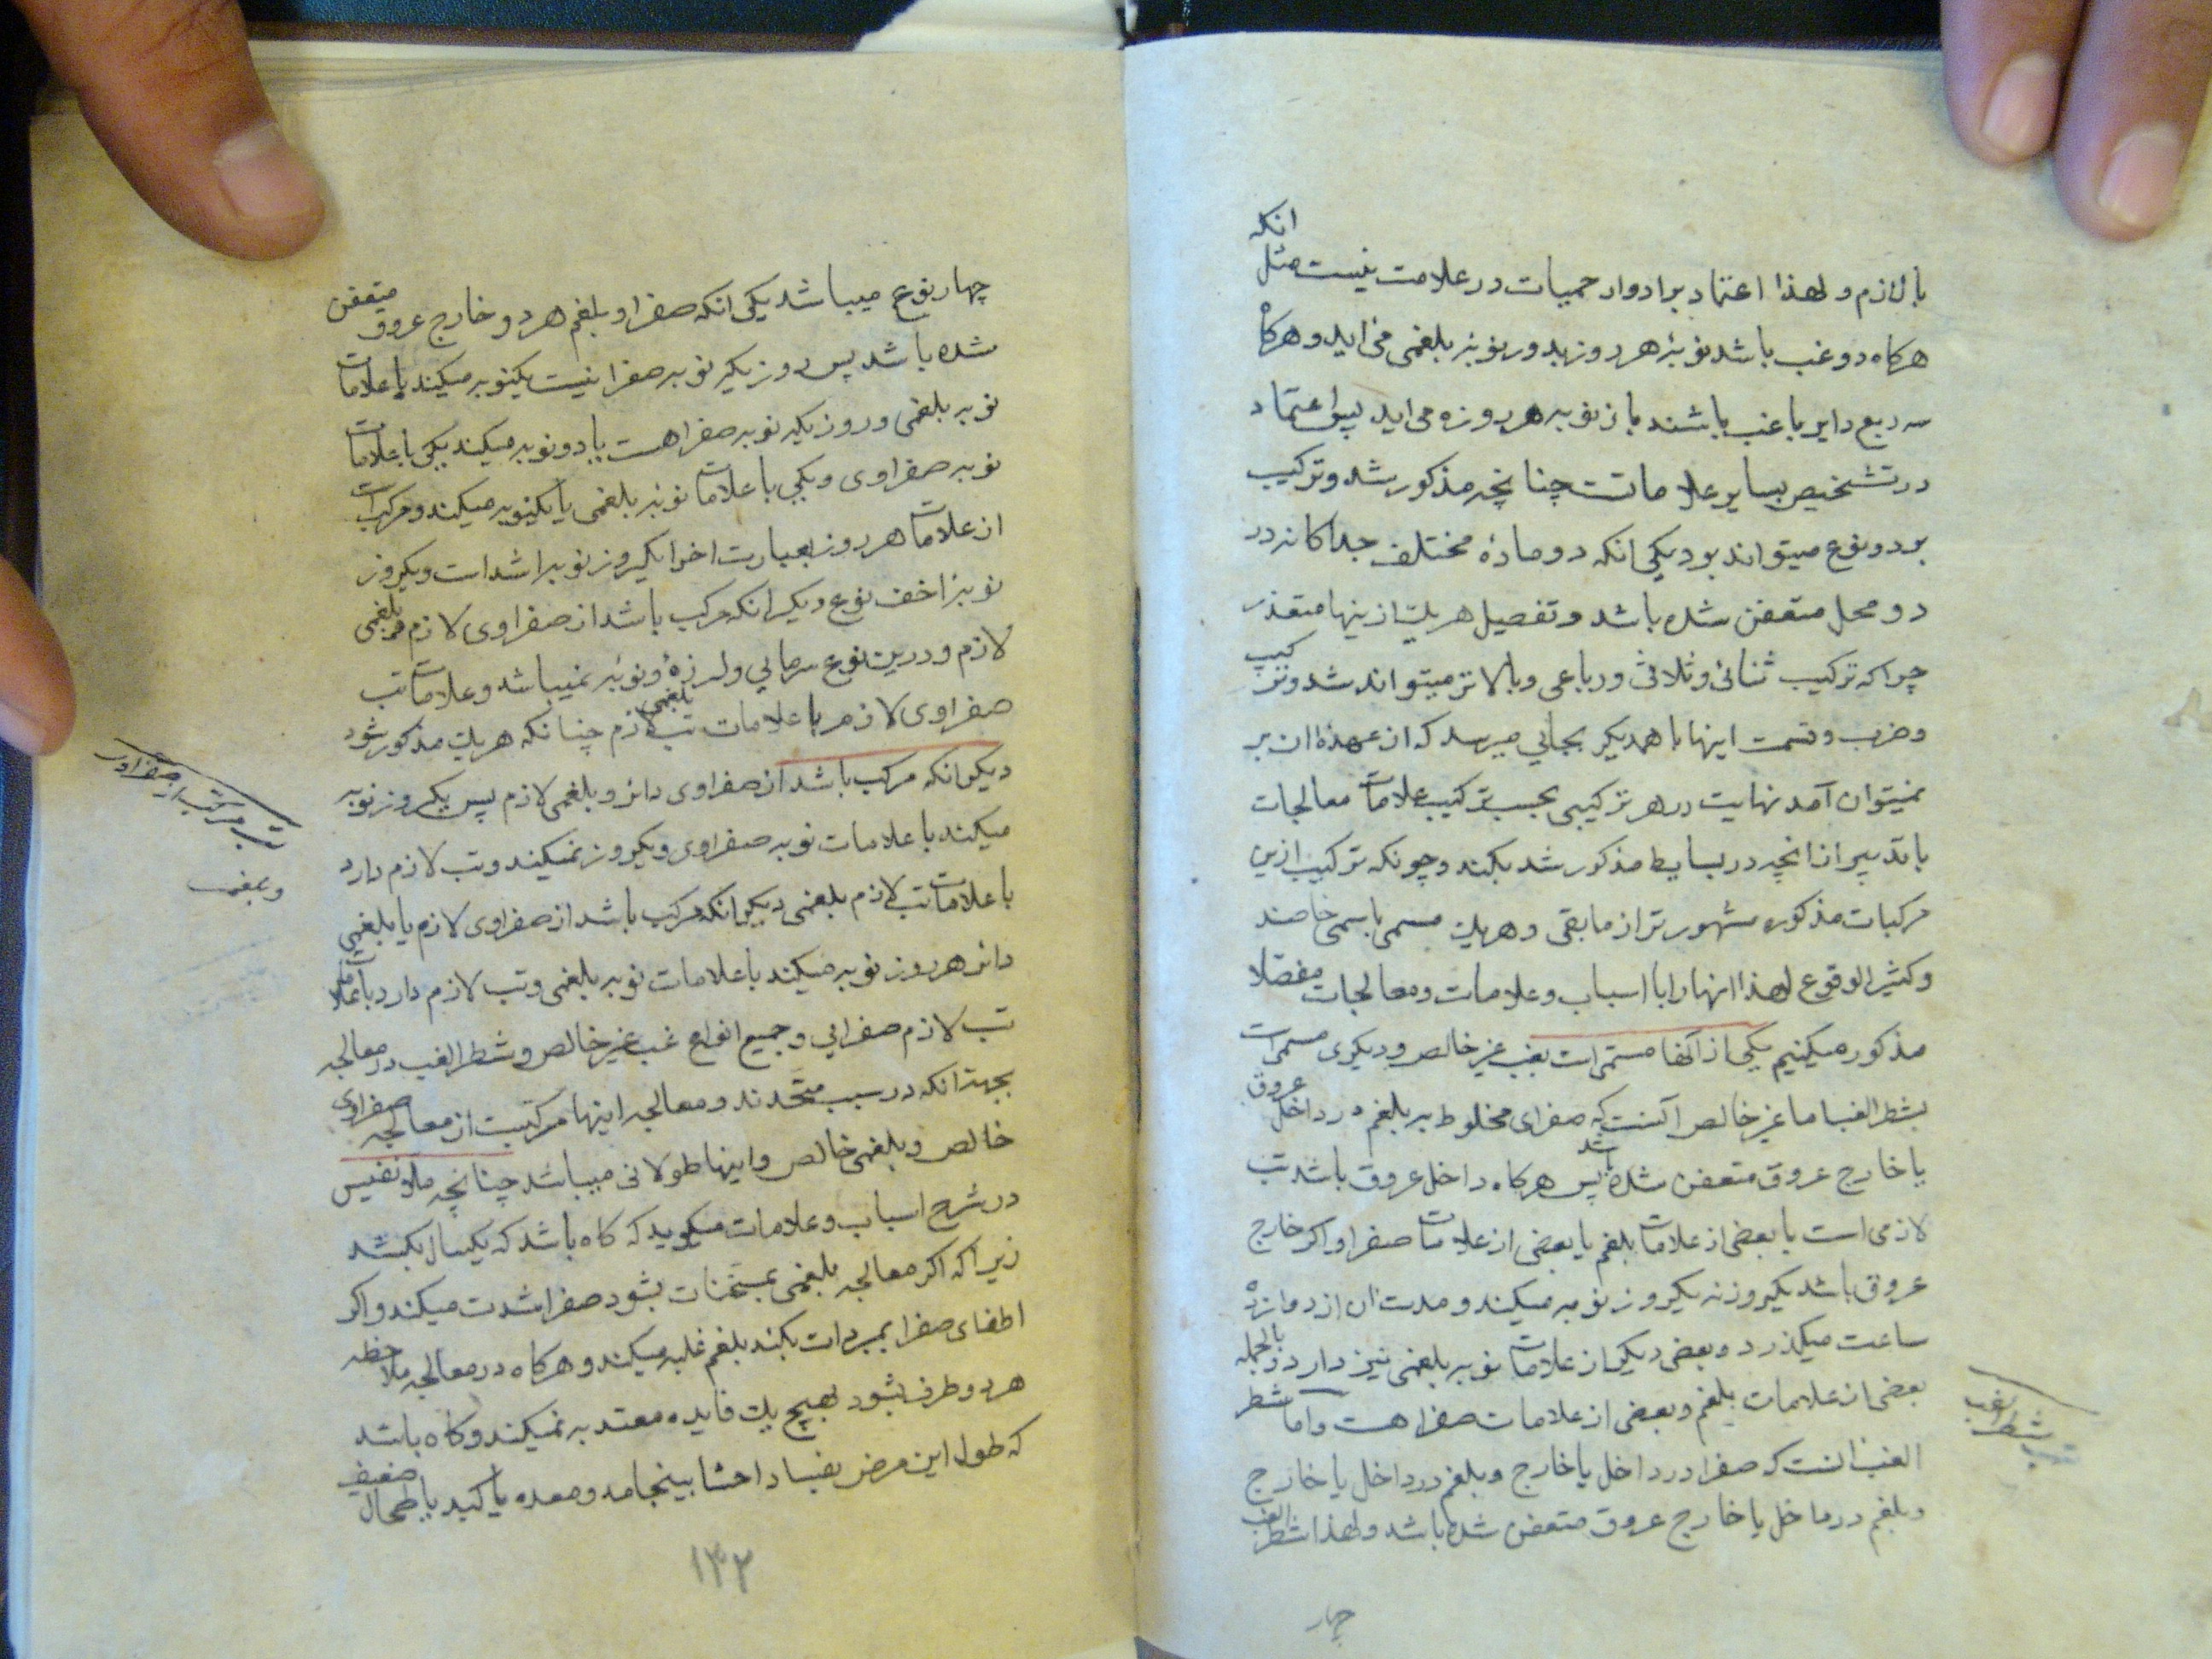 بالازم و لهذا اعتماد بر ادوار حمیات در علامت نیست مثل انکه
هرکاه دو غب باشد نوبۀ هر روز بدور نوبۀ بلغمی می اید و هرکاه
سه ربع دایر یا غب باشند باز نوبه هر روزه می اید پس اعتماد
در تشخیص بسایر علاماتست چنانچه مذکور شد و ترکیب
بر دو نوع میتواند بود یکی انکه دو مادۀ مختلف جداکانه در
دو محل متعفن شده باشد و تفصیل هریك ازینها متعذر
چرا که ترکیب ثنائی و ثلاثی و رباعی و بالاتر میتواند شد و ترکیب
و ضرب و قسمت اینها با همدیکر بجایی میرسد که از عهدۀ ان بر
نمیتوان آمد نهایت در هر ترکیبی بحسب ترکیب علامات معالجات
با تدبیر از انچه در بسایط مذکور شد بکند و چونکه ترکیب ازین
مرکبات مذکوره مشهورتر از مابقی و هریك مسمی باسمی خاصند
و کثیر الوقوع لهذا انها را با اسباب و علامات و معالجات مفصّلا
مذکور میکنیم یکی از انها مسمی است بغب غیر خالص و دیکری مسمی است
بشطر الغب اما غیر خالص آنست که صفرای مخلوط به بلغم در داخل عروق
یا خارج عروق متعفن شده باشد پس هرکاه داخل عروق باشد تب
لازمی است با بعضی از علامات بلغم یا بعضی از علامات صفرا و اکر خارج
عروق باشد یکروز نه یکروز نوبه میکند و مدت ان از دوازده
ساعت میکذرد و بعضی دیکر از علامات نوبه بلغمی نیز دارد و بالجمله
بعضی از علامات بلغم و بعضی از علامات صفرا هست و اما شطر
الغب انست که صفرا در داخل یا خارج و بلغم در داخل یا خارج
و بلغم در داخل یا خارج عروق متعفن شده باشد و لهذا شطر الغب
شطر الغب
چهار
چهار نوع میباشد یکی انکه صفرا و بلغم هر دو خارج عروق متعفن
شده باشد پس روزیکه نوبه صفرا نیست یکنوبه میکند با علامات
نوبه بلغمی و روزیکه نوبه صفرا هست یا دو نوبه میکند یکی با علامات
نوبه صفراوی و یکی با علامات نوبۀ بلغمی یا یکنوبه میکند و مرکب است
از علامات هر دو بعبارت اخرا یکروز نوبه اشد است و یکروز
نوبۀ اخف نوع دیکر انکه مرکب باشد از صفراوی لازم و بلغمی
لازم و درین نوع سرمایی و لرزۀ و نوبۀ نمیباشد و علامات تب
صفراوی لازم با علامات تب بلغمی لازم چنانکه هریك مذکور شود
دیکر انکه مرکب باشد از صفراوی دائر و بلغمی لازم پس یکروز نوبه
میکند با علامات نوبه صفراوی و یکروز نمیکند و تب لازم دارد
با علامات تب لازم بلغمی دیکر انکه مرکب باشد از صفراوی لازم یا بلغمی
دائر هر روز نوبه میکند با علامات نوبه بلغمی و تب لازم دارد با علامات
تب لازم صفرایی و جمیع انواع غب غیر خالص و شطر الغب در معالجه
بجهة انکه در سبب متّحدند و معالجه اینها مرکبست از معالجه صفراوی
خالص و بلغمی خالص و اینها طولانی میباشد چنانچه ملا نفیس
در شرح اسباب و علامات میکوید که کاه باشد که یکسال بکشد
زیرا که اکر معالجه بلغمی بمسخنات بشود صفرا شدت میکند و اکر
اطفای صفرا بمبردات بکند بلغم غلبه میکند و هرکاه در معالجه ملاحظه
هر دو طرف بشود بهیچ یك فایده معتد به نمیکند و کاه باشد
که طول این مرض بفساد احشا بینجامد و معده یا کبد یا طحال ضعیف
تب مرکب از صفراوی
و بلغمی
۱۳۲